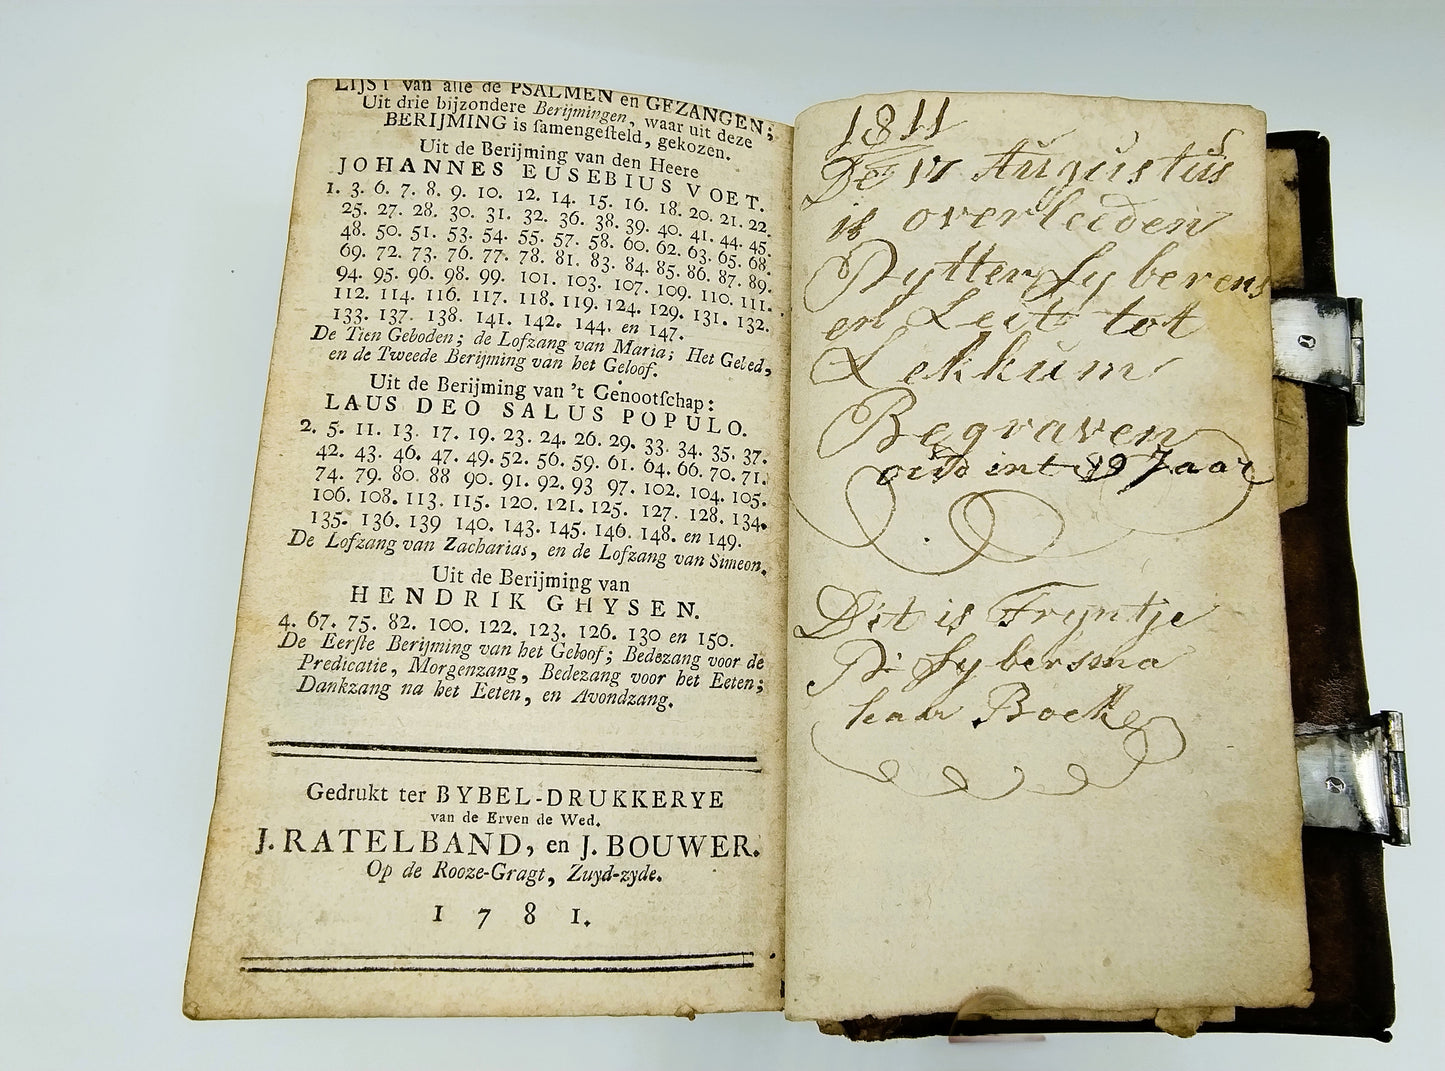 LIJST van alle de PSALMEN en GEZANGEN;
Uit drie bijzondere Berijmingen, waar uit deze
BERIJMING is ſamengeſteld, gekozen.
Uit de Berijming van den Heere
JOHANNES EUSEBIUS VOET.
1. 3. 6. 7. 8. 9. 10. 12. 14. 15. 16. 18. 20. 21. 22.
25. 27. 28. 30. 31. 32. 36. 38. 39. 40. 41. 44. 45.
48. 50. 51. 53. 54. 55. 57. 58. 60. 62. 63. 65. 68.
69. 72. 73. 76. 77. 78. 81. 83. 84. 85. 86. 87. 89.
94. 95. 96. 98. 99. 101. 103. 107. 109. 110. 111.
112. 114. 116. 117. 118. 119. 124. 129. 131. 132.
133. 137. 138. 141. 142. 144. en 147.
De Tien Geboden; de Lofzang van Maria; Het Gebed,
en de Tweede Berijming van het Geloof.
Uit de Berijming van 't Genootſchap:
LAUS DEO SALUS POPULO.
2. 5. 11. 13. 17. 19. 23. 24. 26. 29. 33. 34. 35. 37.
42. 43. 46. 47. 49. 52. 56. 59. 61. 64. 66. 70. 71.
74. 79. 80. 88 90. 91. 92. 93 97. 102. 104. 105.
106. 108. 113. 115. 120. 121. 125. 127. 128. 134.
135. 136. 139 140. 143. 145. 146. 148. en 149.
De Lofzang van Zacharias, en de Lofzang van Simeon.
Uit de Berijming van
HENDRIK GHYSEN.
4. 67. 75. 82. 100. 122. 123. 126. 130 en 150.
De Eerſte Berijming van het Geloof; Bedezang voor de
Predicatie, Morgenzang, Bedezang voor het Eeten;
Dankzang na het Eeten, en Avondzang.
Gedrukt ter BYBEL-DRUKKERYE
van de Erven de Wed.
J. RATELBAND, en J. BOUWER.
Op de Rooze-Gragt, Zuyd-zyde.
1781.
1811
De 17 Augustus
is overleeden
Pytter Sybrens
en Leit tot
Lekkum
Begraven
oud int 19 Jaar
Dit is Tryntje
P: Sybersma
haar Boek